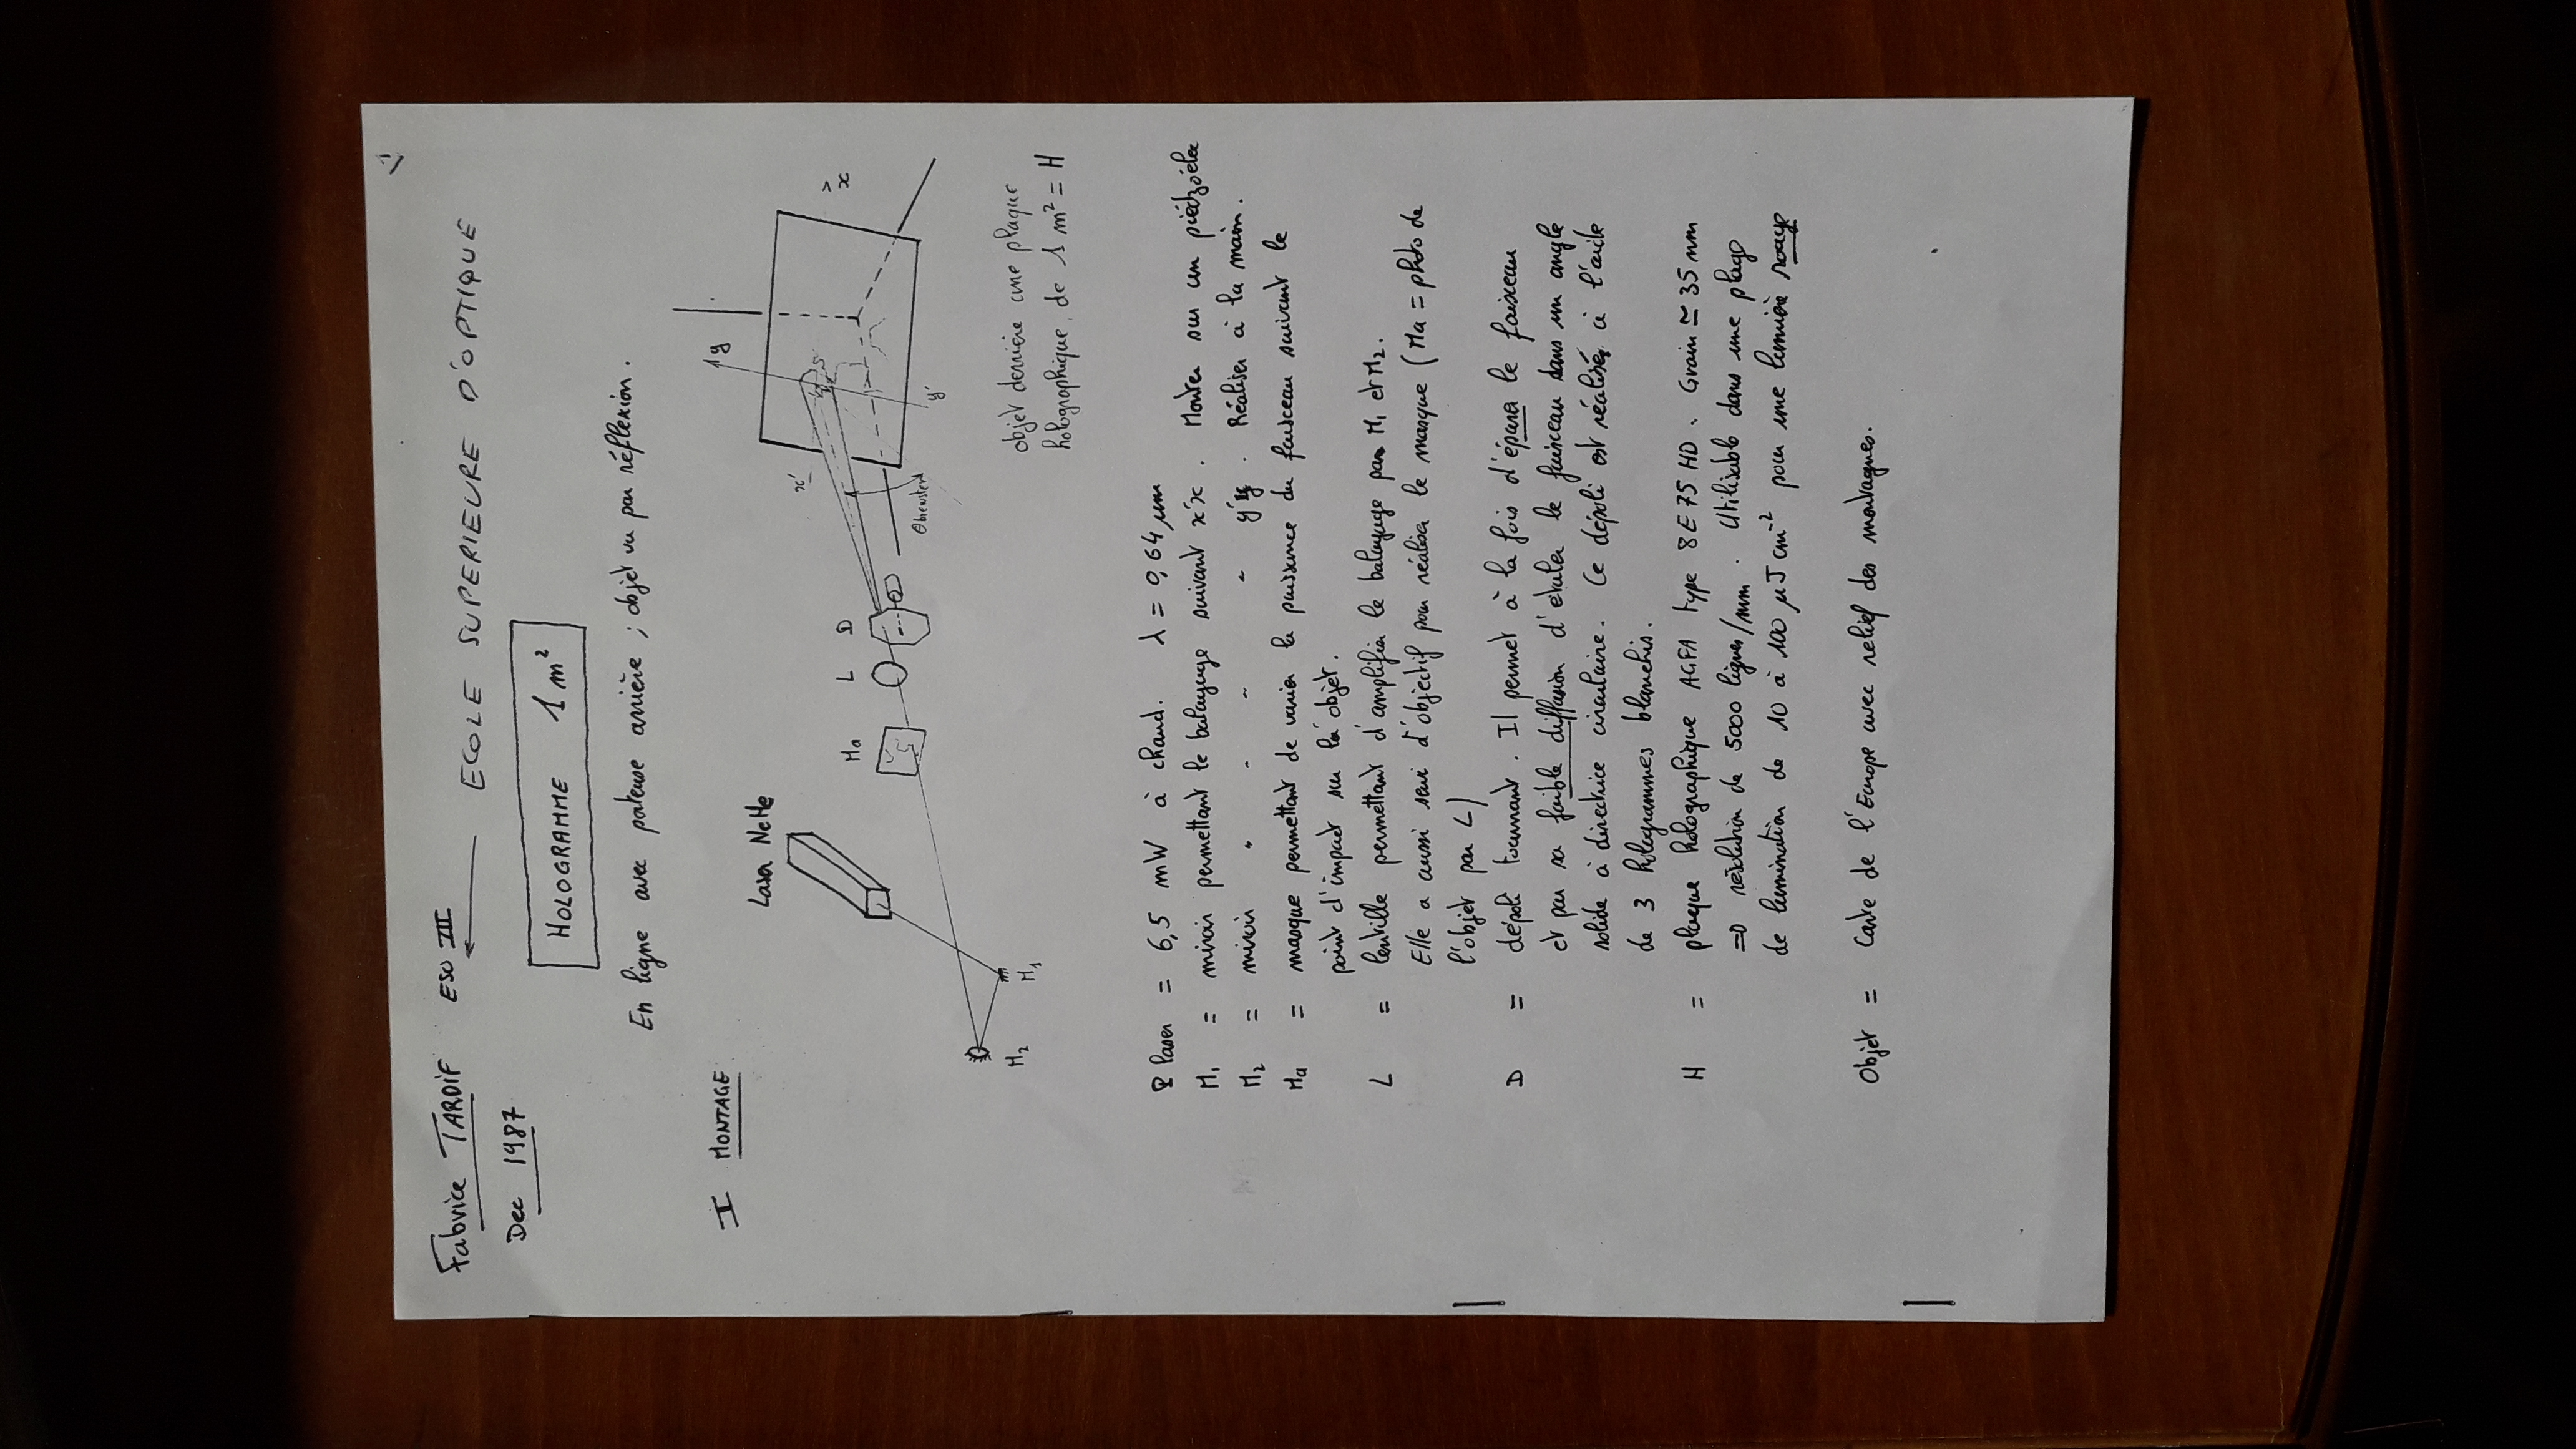 Fabrice TARDIF ESO III ECOLE SUPERIEURE D'OPTIQUE
Dec 1987
HOLOGRAMME 1 m²
En ligne avec porteuse arrière ; objet vu par réflexion.
I MONTAGE
Laser NeHe
y
x'
x
Ma L D
θbrewster
y'
M2
M1
objet derrière une plaque
holographique de 1 m² = H
P laser = 6,5 mW à chaud. λ = 0,64 µm
M1 = miroir permettant le balayage suivant x'x . Monter sur un piédzoélec
M2 = miroir " " " " y'y . Réaliser à la main.
Ma = masque permettant de varier la puissance du faisceau suivant le
point d'impact sur l'objet.
L = lentille permettant d'amplifier le balayage par M1 et M2.
Elle a aussi servi d'objectif pour réaliser le masque (Ma = photo de
l'objet par L)
D = dépoli tournant . Il permet à la fois d'épurer le faisceau
et par sa faible diffusion d'étaler le faisceau dans un angle
solide à directrice circulaire. Ce dépoli est réalisé à l'aide
de 3 hologrammes blanchis.
H = plaque holographique AGFA type 8E75 HD . Grain ≃ 35 nm
=> résolution de 5000 lignes/mm . Utilisable dans une plage
de lumination de 10 à 100 µJ cm⁻² pour une lumière rouge
Objet = Carte de l'Europe avec relief des montagnes.